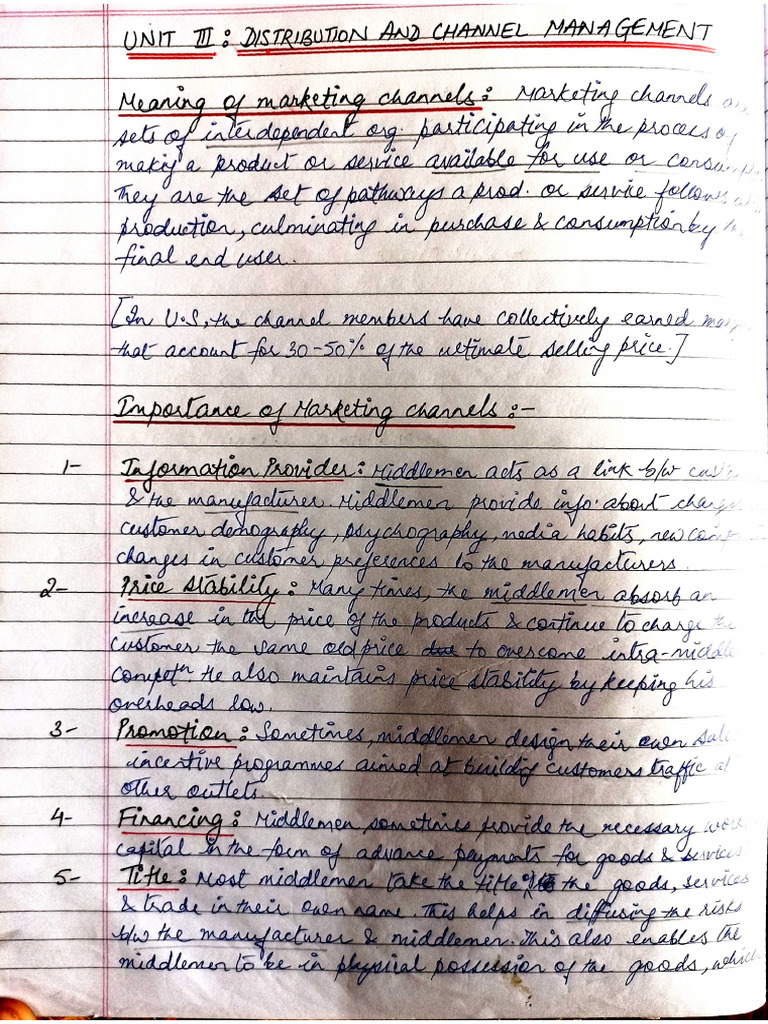 UNIT III : DISTRIBUTION AND CHANNEL MANAGEMENT
Meaning of marketing channels : Marketing channels
sets of interdependent org. participating in the process of
making a product or service available for use or
They are the set of pathways a prod. or service follows
production, culminating in purchase & consumption by
final end user.
[In U.S, the channel members have collectively earned
that account for 30-50% of the ultimate selling price.]
Importance of Marketing channels :-
1- Information Provider : Middlemen acts as a link b/w
& the manufacturer. Middlemen provide info. about
customer demography, psychography, media habits, new
changes in customer preferences to the manufacturers.
2- Price Stability : Many times, the middlemen absorb an
increase in the price of the products & continue to charge the
customer the same old price to overcome intra-middle
competn. He also maintains price stability by keeping his
overheads low.
3- Promotion : Sometimes, middlemen design their own
incentive programmes aimed at building customers traffic at
other outlets.
4- Financing : Middlemen, sometimes provide the necessary
capital in the form of advance payments for goods & services
5- Title : Most middlemen take the title the goods, services
& trade in their own name. This helps in diffusing the risks
b/w the manufacturer & middlemen. This also enables the
middlemen to be in physical possession of the goods, which